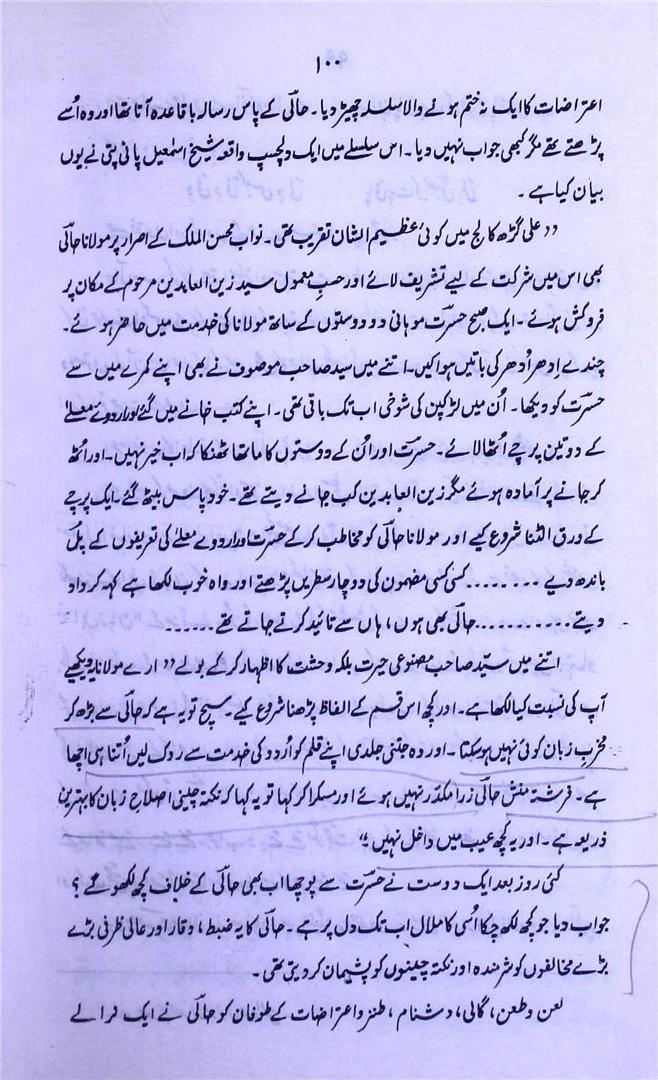 ۱۰۰
اعتراضات کا ایک نہ ختم ہونے والا سلسلہ چھیڑ دیا۔ حالی کے پاس رسالہ باقاعدہ آتا تھا اور وہ اُسے
پڑھتے تھے مگر کبھی جواب نہیں دیا۔ اس سلسلے میں ایک دلچسپ واقعہ شیخ اسمٰعیل پانی پتی نے یوں
بیان کیا ہے۔
”علی گڑھ کالج میں کوئی عظیم الشان تقریب تھی۔ نواب محسن الملک کے اصرار پر مولانا حالی
بھی اس میں شرکت کے لیے تشریف لائے اور حسبِ معمول سید زین العابدین مرحوم کے مکان پر
فروکش ہوئے۔ ایک صبح حسرت موہانی دو دوستوں کے ساتھ مولانا کی خدمت میں حاضر ہوئے۔
چندے اِدھر اُدھر کی باتیں ہوا کیں۔ اتنے میں سید صاحب موصوف نے بھی اپنے کمرے میں سے
حسرت کو دیکھا۔ اُن میں لڑکپن کی شوخی اب تک باقی تھی۔ اپنے کتب خانے میں گئے اور اردوے معلےٰ
کے دو تین پرچے اُٹھا لائے۔ حسرت اور اُن کے دوستوں کا ماتھا ٹھنکا کہ اب خیر نہیں۔ اور اٹھ
کر جانے پر آمادہ ہوئے مگر زین العابدین کب جانے دیتے تھے۔ خود پاس بیٹھ گئے۔ ایک پرچے
کے ورق الٹنا شروع کیے اور مولانا حالی کو مخاطب کر کے حسرت اور اردوے معلےٰ کی تعریفوں کے پل
باندھ دیے ........ کسی کسی مضمون کی دو چار سطریں پڑھتے اور واہ خوب لکھا ہے کہہ کر داد
دیتے........... حالی بھی ہوں، ہاں سے تائید کرتے جاتے تھے ......
اتنے میں سید صاحب مصنوعی حیرت بلکہ وحشت کا اظہار کر کے بولے ”ارے مولانا یہ دیکھیے
آپ کی نسبت کیا لکھا ہے۔ اور کچھ اس قسم کے الفاظ پڑھنا شروع کیے۔ سچ تو یہ ہے کہ حالی سے بڑھ کر
مخربِ زبان کوئی نہیں ہو سکتا۔ اور وہ جتنی جلدی اپنے قلم کو اُردو کی خدمت سے روک لیں اُتنا ہی اچھا
ہے۔ فرشتہ منش حالی ذرا مکدّر نہیں ہوئے اور مسکرا کر کہا تو یہ کہا کہ نکتہ چینی اصلاحِ زبان کا بہترین
ذریعہ ہے۔ اور یہ کچھ عیب میں داخل نہیں۔“
کئی روز بعد ایک دوست نے حسرت سے پوچھا اب بھی حالی کے خلاف کچھ لکھو گے؟
جواب دیا جو کچھ لکھ چکا اُسی کا ملال اب تک دل پر ہے۔ حالی کا یہ ضبط، وقار اور عالی ظرفی بڑے
بڑے مخالفوں کو شرمندہ اور نکتہ چینوں کو پشیمان کر دیتی تھی۔
لعن و طعن، گالی، دشنام، طنز و اعتراضات کے طوفان کو حالی نے ایک نرالے